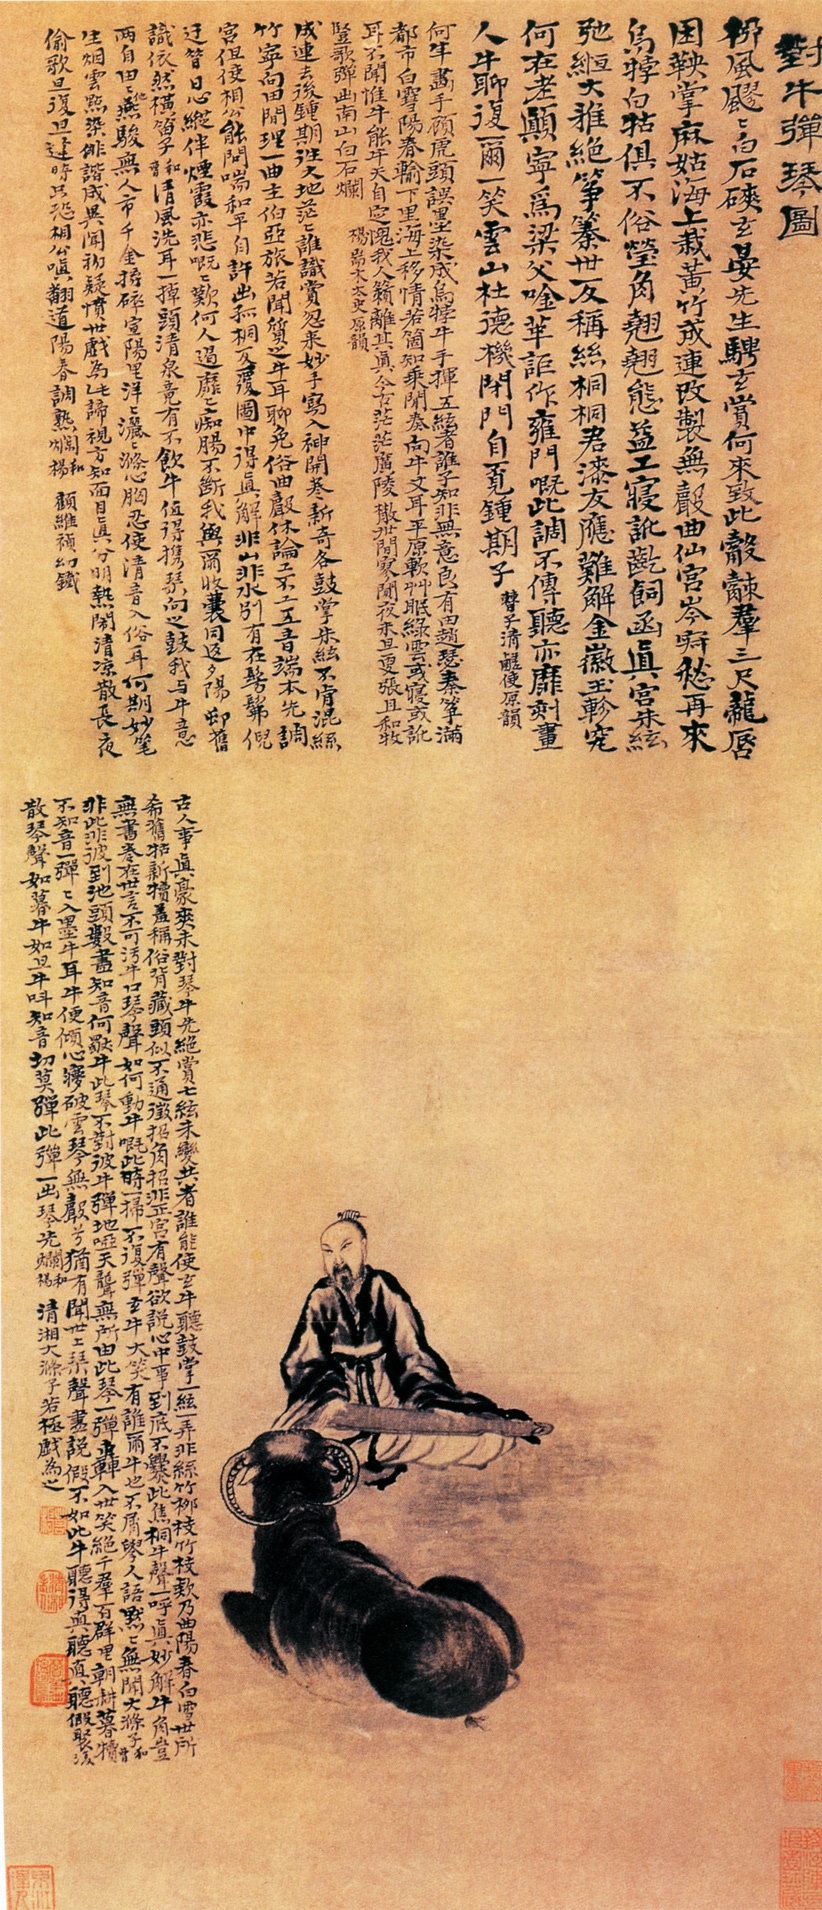 對牛彈琴圖
柳風颼颼白石硤玄晏先生騁玄賞何來致此觳觫羣三尺龍唇
困鞅掌麻姑海上栽黃竹成連改製無聲曲仙宮岑寂愁再來
烏犉白牯俱不俗瑩角翹翹態益工寢訛齕飼函真宮朱絃
弛絙大雅絶箏𥱧世反稱絲桐桐君漆友應難解金徽玉軫宛
何在老顛寧爲梁父唫莘詎作雍門嘅此調不傳聽亦靡刻畫
人牛聊復爾一笑雲山杜德機閉門自覓鍾期子 曹子清鹺使原韻
何年畫手顧虎頭誤墨染成烏犉牛手揮五絃者誰子知非無意良有由趙瑟秦箏滿
都市白雪陽春輸下里海上移情若箇知乘閒奏向牛丈耳平原軟艸眠綠雲或寢或訛
耳不聞惟牛能牛天自定愧我人籟離其真今古茫茫廣陵散世間寥闃夜未旦更張且和牧
豎歌彈出南山白石爛 楊耑木太史原韻
成連去後鍾期往大地茫茫誰識賞忽來妙手寫入神開卷新奇各鼓掌朱絃不肯混絲
竹寧向田間理一曲主伯亞旅若聞質之牛耳聊免俗曲聲休論工不工五音端本先調
宮但使相公能問喘和平自許出孤桐反覆圖中得真解非山非水別有在髣髴倪
迂答日心縱伴煙霞亦悲嘅嘅歎何人過靡靡痴腸不斷我與爾收囊同返夕陽邨舊
識依然橫笛子 和韻 清風洗耳一掉頭清泉竟有不飲牛值得携琴向之鼓我與牛意
兩自由燕駿無人市千金擣碎宣陽里洋洋灑灑滌心胸忍使清音入俗耳何期妙笔
生烟雲點染俳諧成異聞初疑憤世戲為此諦視方知面目真分明熱鬧清凉散長夜
偷歌旦復旦逢時只恐相公嗔翻道陽春調熟爛 和楊韻 顧維禎幼鐵
古人事真豪爽未對琴牛先絶賞七絃未變共者誰能使玄牛聽鼓掌一絃一弄非絲竹柳枝竹枝欸乃曲陽春白雪世所
希舊牯新犢羞稱俗背藏頭似不通徵招角招非正宮有聲欲說心中事到底不爨此焦桐牛聲一呼真妙解牛角豈
無書卷在世言不可污牛口琴聲如何動牛嘅此時一掃不復彈玄牛大笑有誰爾牛也不屑學人語默默無聞大滌子 和曹韻
非此非彼到池頭數盡知音何獨牛此琴不對彼牛彈地啞天聾無所由此琴一彈轟入世笑絶千羣百群里朝耕暮犢
不知音一彈彈入墨牛耳牛便傾心夢破雲琴無聲兮猶有聞世上琴聲盡說假不如此牛聽得真聽真聽假聚復
散琴聲如暮牛如旦牛叫知音切莫彈此彈一出琴先爛 和楊韻 清湘大滌子若極戲為之